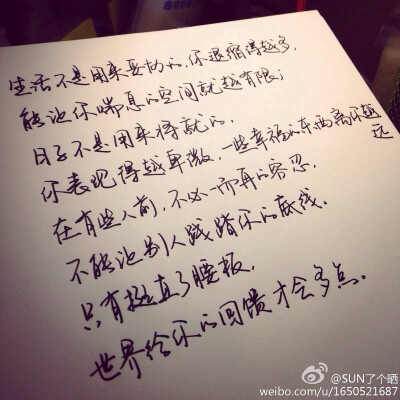 生活不是用来妥协的,你退缩得越多,
能让你喘息的空间就越有限;
日子不是用来将就的,
你表现得越卑微,一些幸福的东西离你越远
在有些人前,不必一而再的容忍,
不能让别人践踏你的底线。
只有挺直了腰板,
世界给你的回馈才会多点。
@SUN了个晒
weibo.com/u/1650521687